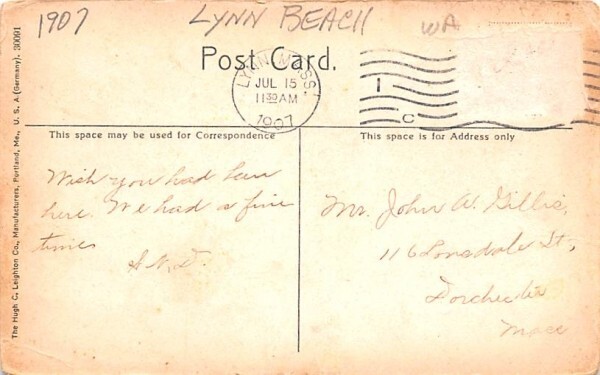 1907
LYNN BEACH
WA
Post Card.
LYNN, MASS.
JUL 15
11 30 AM
1907
1
C
This space may be used for Correspondence
This space is for Address only
Wish you had been
here. We had a fine
times
Mr. John A. Gillis,
116 Lonsdale St.,
Dorchester
Mass
The Hugh C. Leighton Co., Manufacturers, Portland, Me., U. S. A (Germany). 30091